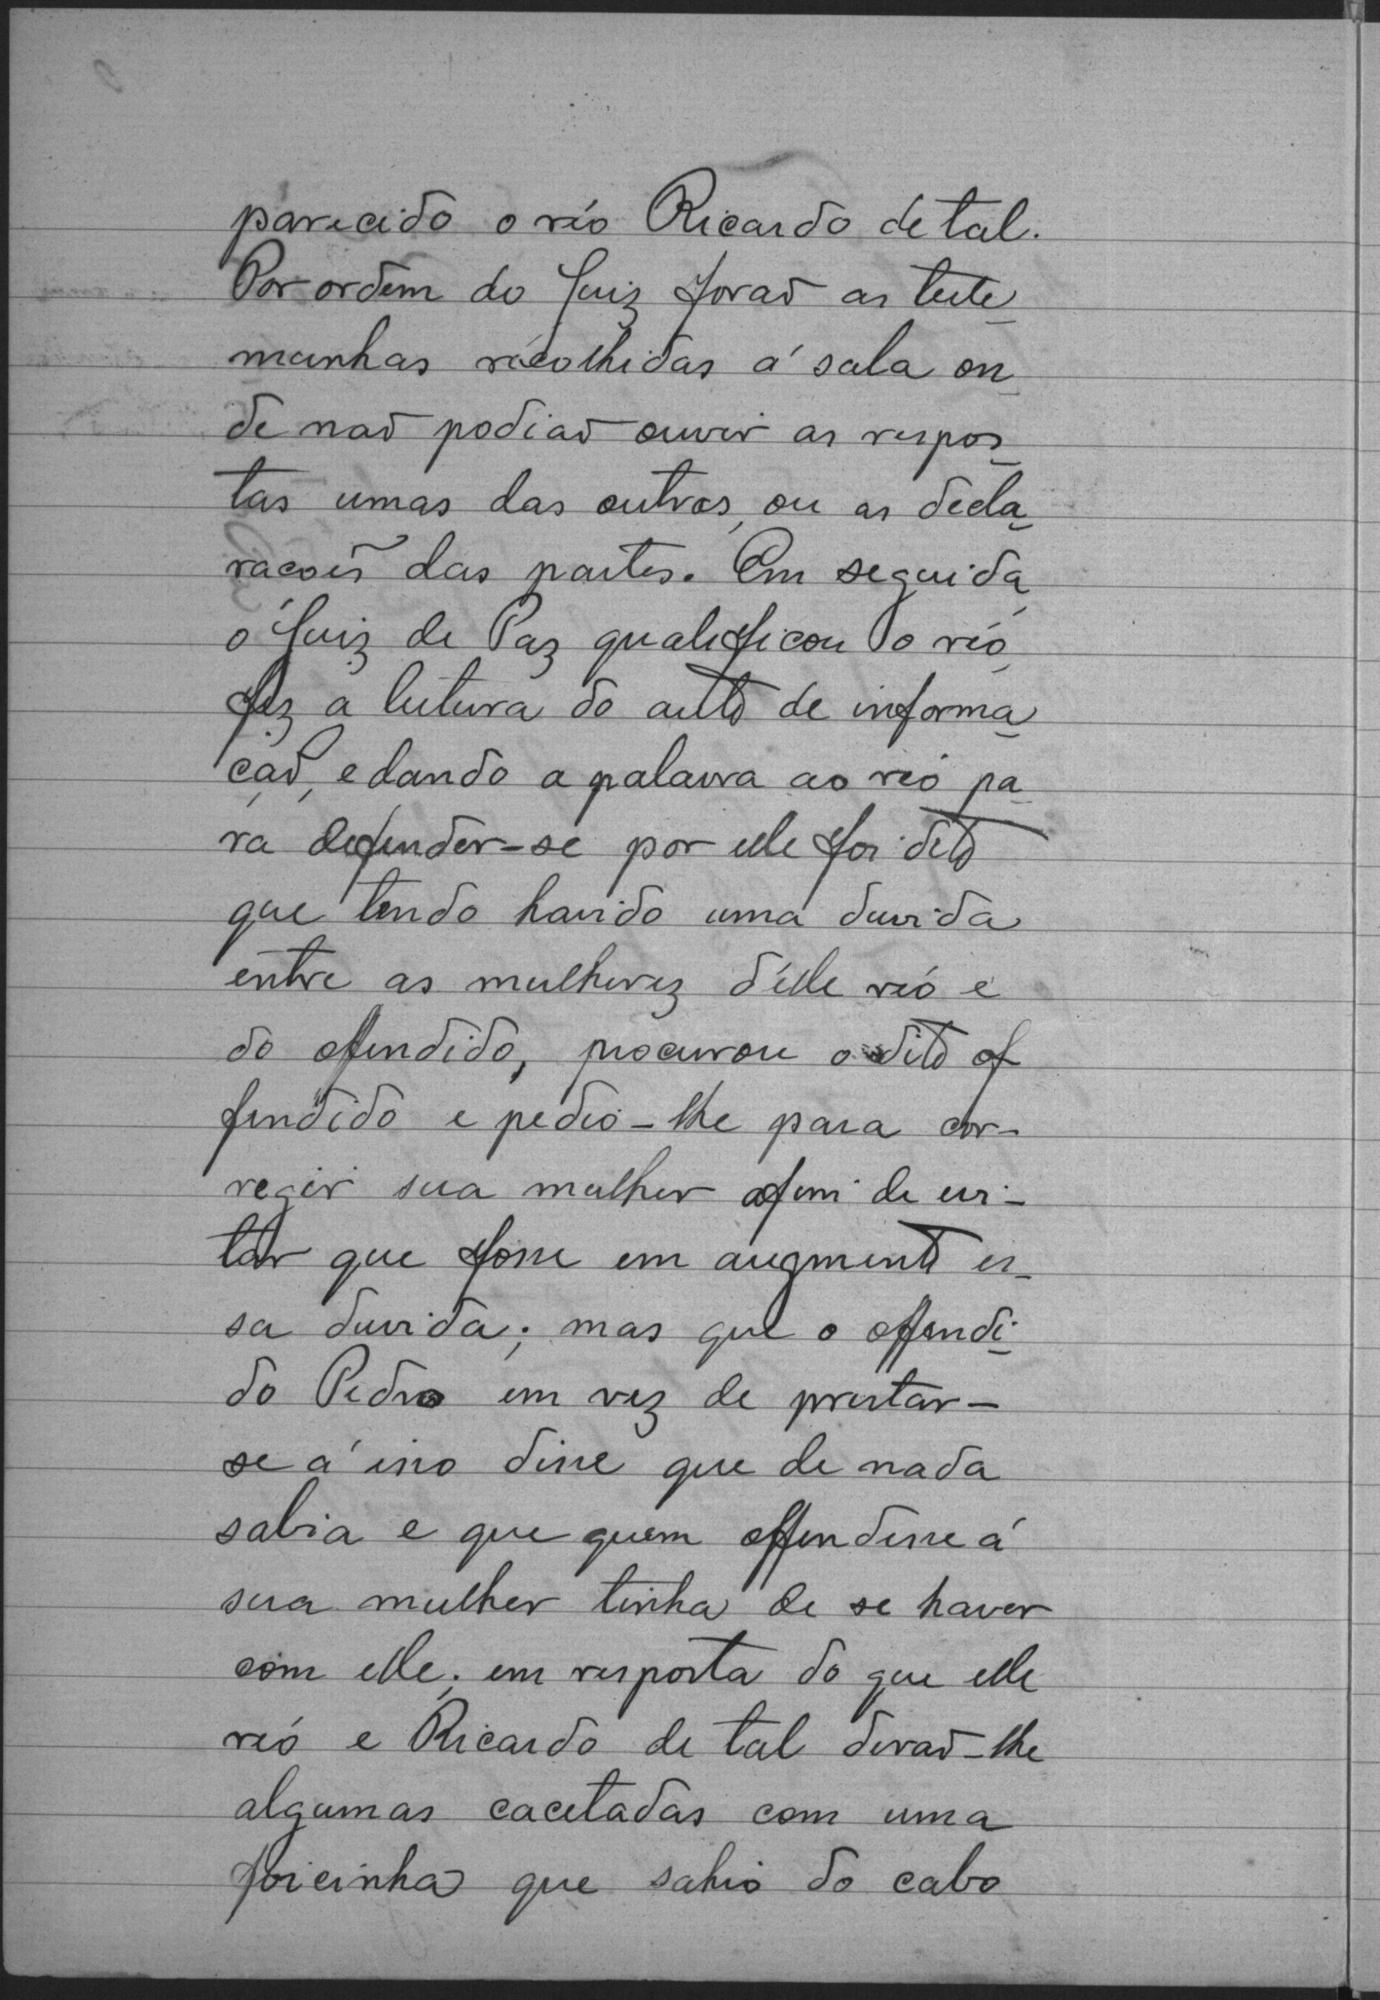 parecido o réo Ricardo de tal.
Por ordem do Juiz forão as teste
munhas recolhidas á sala on
de não podião ouvir as respos
tas umas das outras, ou as decla
racões das partes. Em seguida
o Juiz de Paz qualificou o réo,
fez a leitura do auto de informa
ção, e dando a palavra ao réo pa
ra defender-se por elle foi dito
que tendo havido uma duvida
entre as mulherez d'élle reó e
do offendido, procurou o dito of
fendido e pedio-lhe para cor-
regir sua mulher afim de evi-
tar que fosse em augmento es-
sa duvida; mas que o offendi-
do Pedro em vez de prestar-
se á isso disse que de nada
sabia e que quem offendesse á
sua mulher tinha de se haver
com elle; em resposta do que elle
reó e Ricardo de tal derão-lhe
algumas cacetadas com uma
foicinha que sahio do cabo